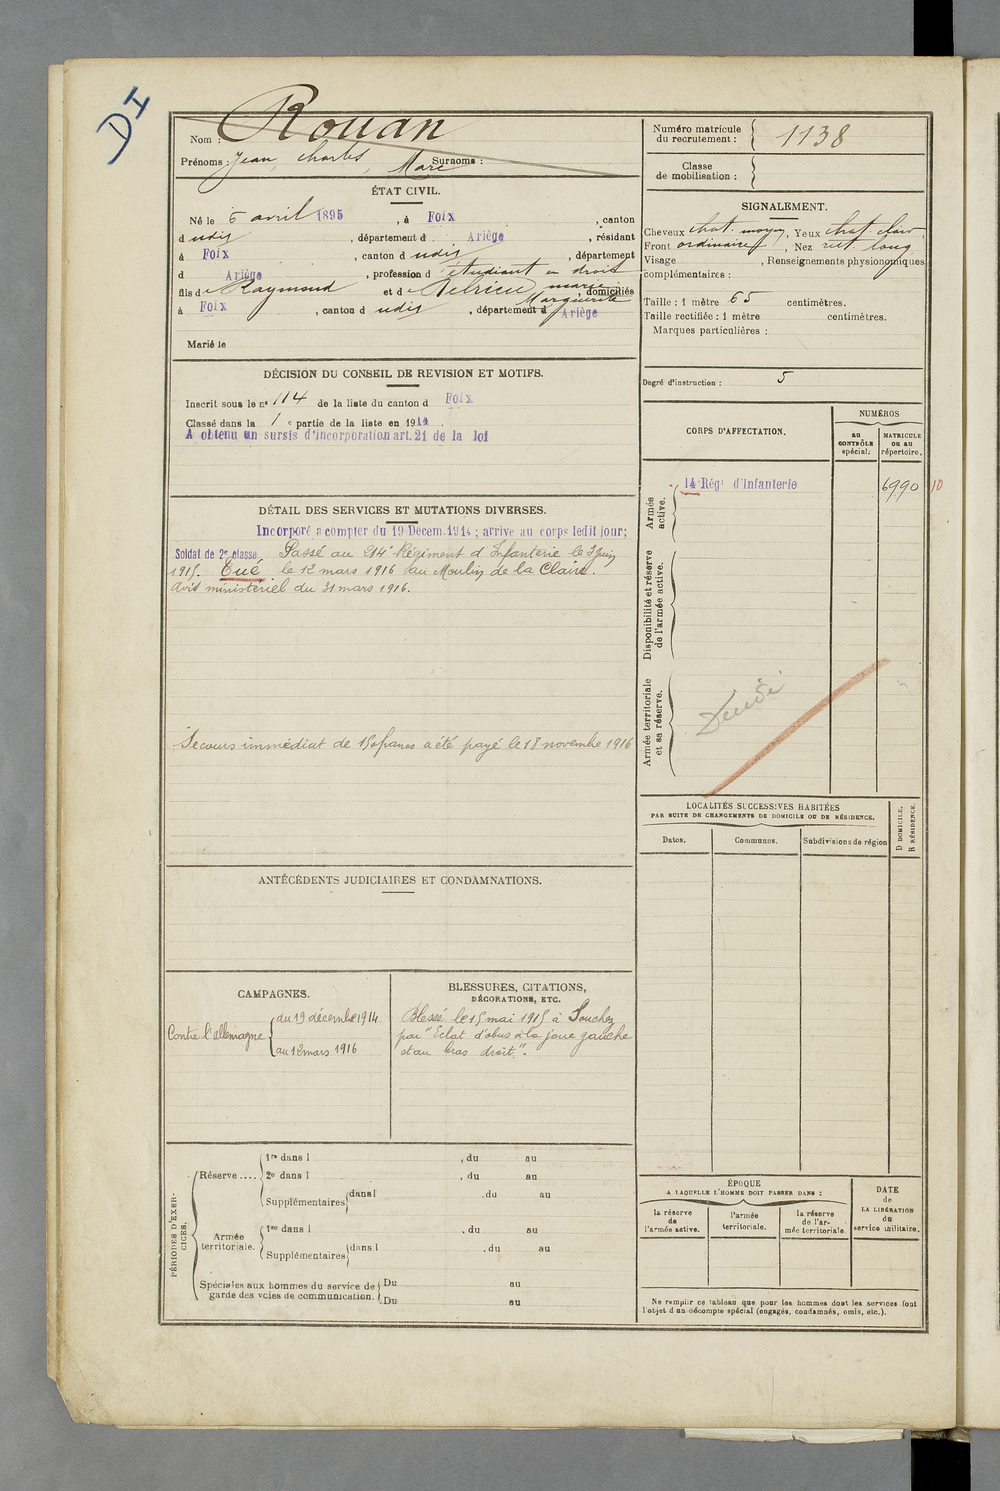 DI
Nom : Rouan
Prénoms : Jean, Charles, Marc Surnoms :
Numéro matricule du recrutement : 1138
Classe de mobilisation :
ÉTAT CIVIL.
Né le 5 avril 1895, à Foix, canton
d udis, département d Ariège, résidant
à Foix, canton d udis, département
d Ariège, profession d étudiant en droit
fils de Raymond et de marie Marguerite, domiciliés
à Foix, canton d udis, département d Ariège
Marié le
SIGNALEMENT.
Cheveux chat. moyen, Yeux chat. clair,
Front ordinaire, Nez rect. long
Visage , Renseignements physionomiques
complémentaires :
Taille : 1 mètre 65 centimètres.
Taille rectifiée : 1 mètre centimètres.
Marques particulières :
Degré d'instruction : 5
DÉCISION DU CONSEIL DE REVISION ET MOTIFS.
Inscrit sous le nº 114 de la liste du canton d Foix
Classé dans la 1 e partie de la liste en 1914.
A obtenu un sursis d'incorporation art. 21 de la loi
DÉTAIL DES SERVICES ET MUTATIONS DIVERSES.
Incorporé a compter du 19 Decem. 1914 ; arrive au corps ledit jour ;
Soldat de 2e classe Passé au 214e Régiment d'Infanterie le 3 juin
1915. Tué le 12 mars 1916 au Moulin de la Claire.
Avis ministériel du 31 mars 1916.
Secours immédiat de 150 francs a été payé le 18 novembre 1916
CORPS D'AFFECTATION.
NUMÉROS
au CONTRÔLE spécial.
MATRICULE ou au répertoire.
Armée active.
14 Régt d'Infanterie 6990 10
Disponibilité et réserve de l'armée active.
Armée territoriale et sa réserve.
LOCALITÉS SUCCESSIVES HABITÉES
PAR SUITE DE CHANGEMENTS DE DOMICILE OU DE RÉSIDENCE.
Dates. Communes. Subdivisions de région
D DOMICILE.
R RÉSIDENCE.
ANTÉCÉDENTS JUDICIAIRES ET CONDAMNATIONS.
CAMPAGNES.
Contre l'allemagne
du 19 décembre 1914
au 12 mars 1916
BLESSURES, CITATIONS,
DÉCORATIONS, ETC.
Blessé le 15 mai 1915 à Souchez
par "Eclat d'obus à la joue gauche
et au bras droit".
PÉRIODES D'EXERCICES.
Réserve....
1re dans l , du au
2e dans l , du au
Supplémentaires dans l , du au
Armée territoriale.
1re dans l , du au
Supplémentaires dans l , du au
Spéciales aux hommes du service de garde des voies de communication.
Du au
Du au
ÉPOQUE
A LAQUELLE L'HOMME DOIT PASSER DANS :
la réserve de l'armée active.
l'armée territoriale.
la réserve de l'armée territoriale
DATE de LA LIBÉRATION du service militaire.
Ne remplir ce tableau que pour les hommes dont les services font
l'objet d'un décompte spécial (engagés, condamnés, omis, etc.).